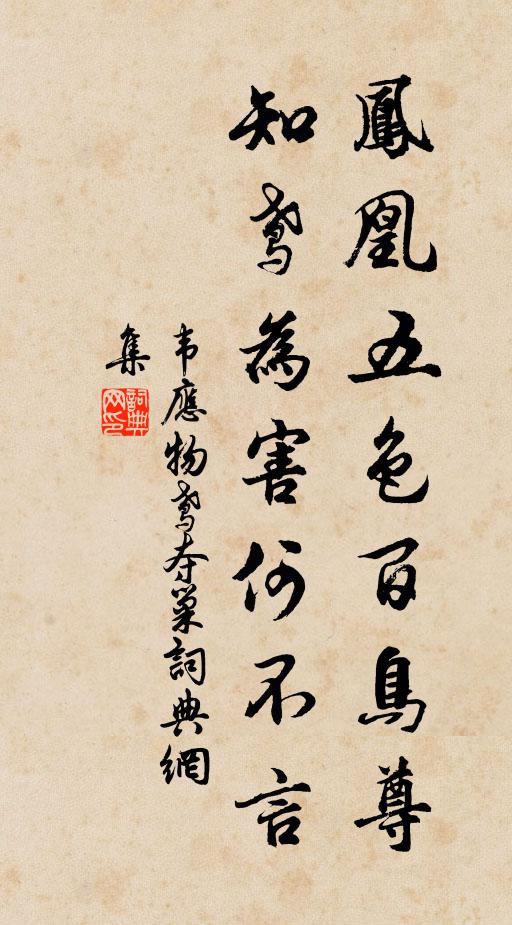 鳳凰五色百鳥尊
知鳶為害何不言
韦應物鳶夺巢詞典網
集
詞典网印